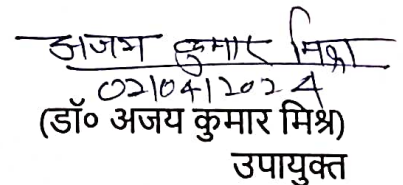 अजय कुमार मिश्रा
02/04/2024
(डॉ० अजय कुमार मिश्र)
उपायुक्त